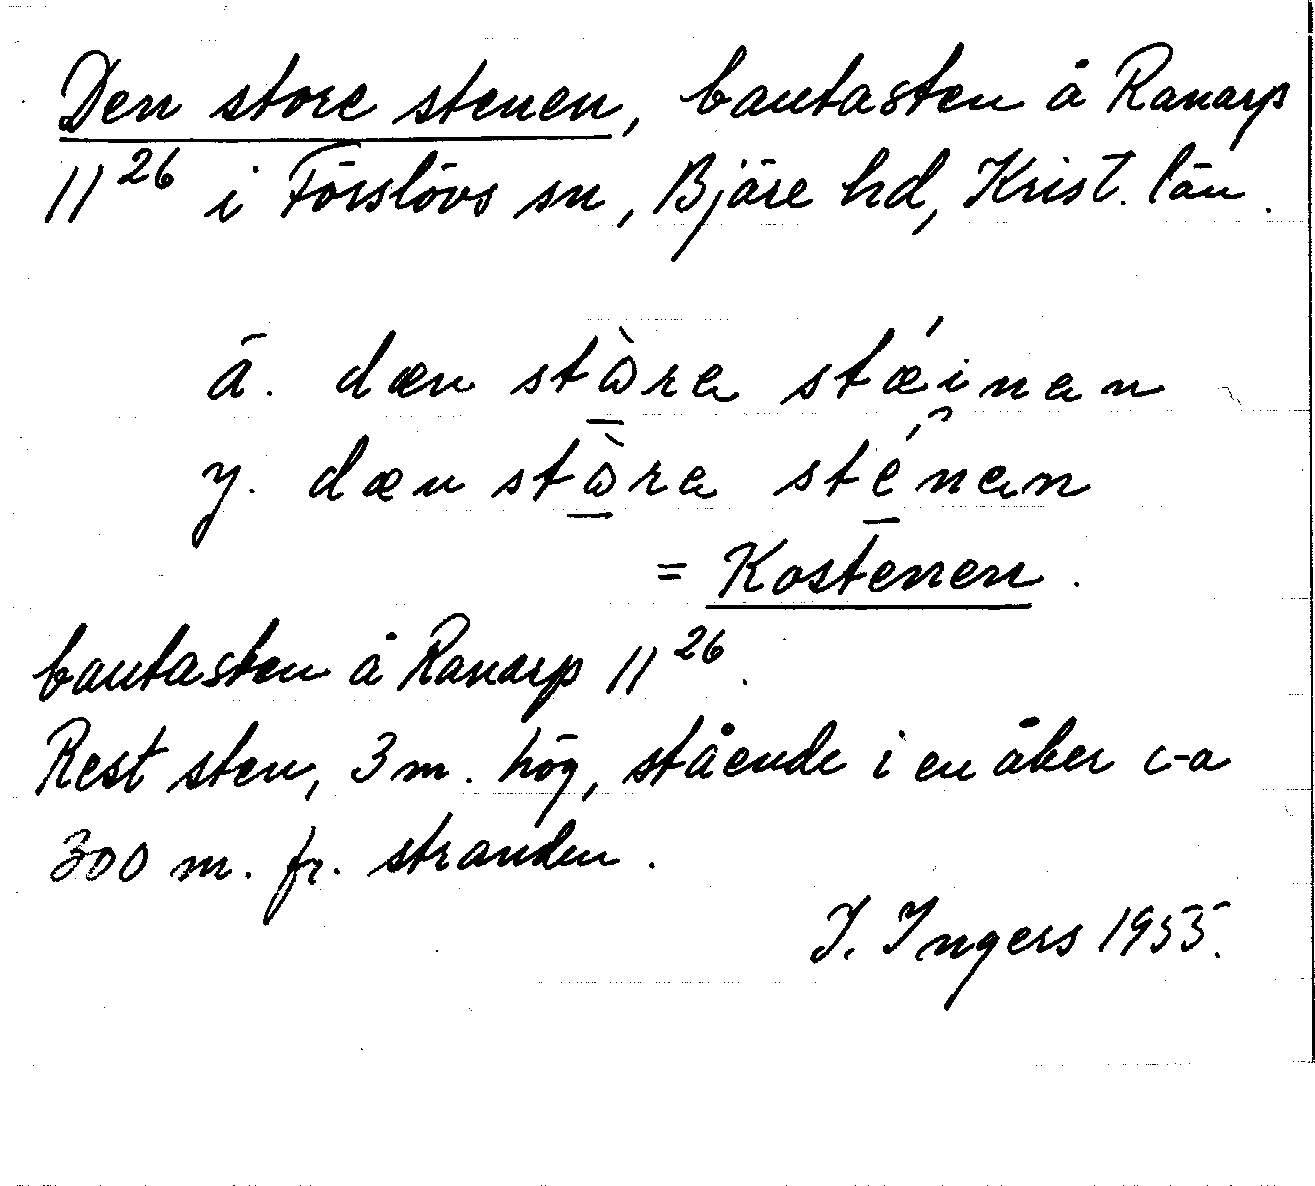 Den store stenen, bautasten å Ranarp
11²⁶ i Förslövs sn, Bjäre hd, Krist. län.
ä. dæn stɷ̠̀ra stǽinan
y. dæn stɷ̠̀ra sté̠nan
= Kostenen.
bautasten å Ranarp 11²⁶.
Rest sten, 3 m. hög, stående i en åker c-a
300 m. fr. stranden.
I. Ingers 1955.